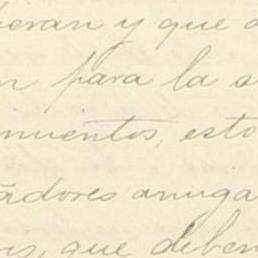 ieran y que
para la s
nuentos, esto
adores amiga
que deben